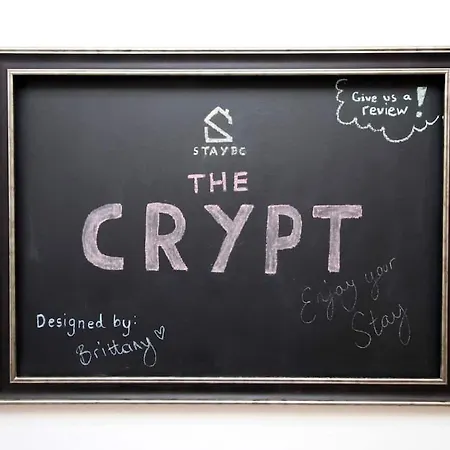 Give us a
review!
STAYBC
THE
CRYPT
Enjoy your
Stay
Designed by:
Brittany